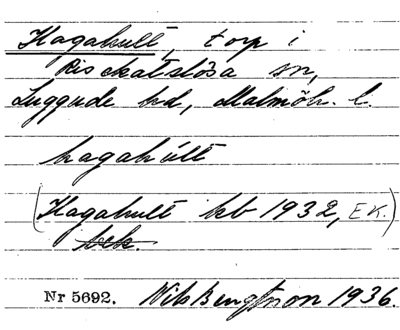 Hagahult, torp i
Risekatslösa sn,
Luggude hd, Malmöh. l.
hagahúlt
(Hagahult kb 1932, EK.)
Nr 5692. Nils Bengtsson 1936.